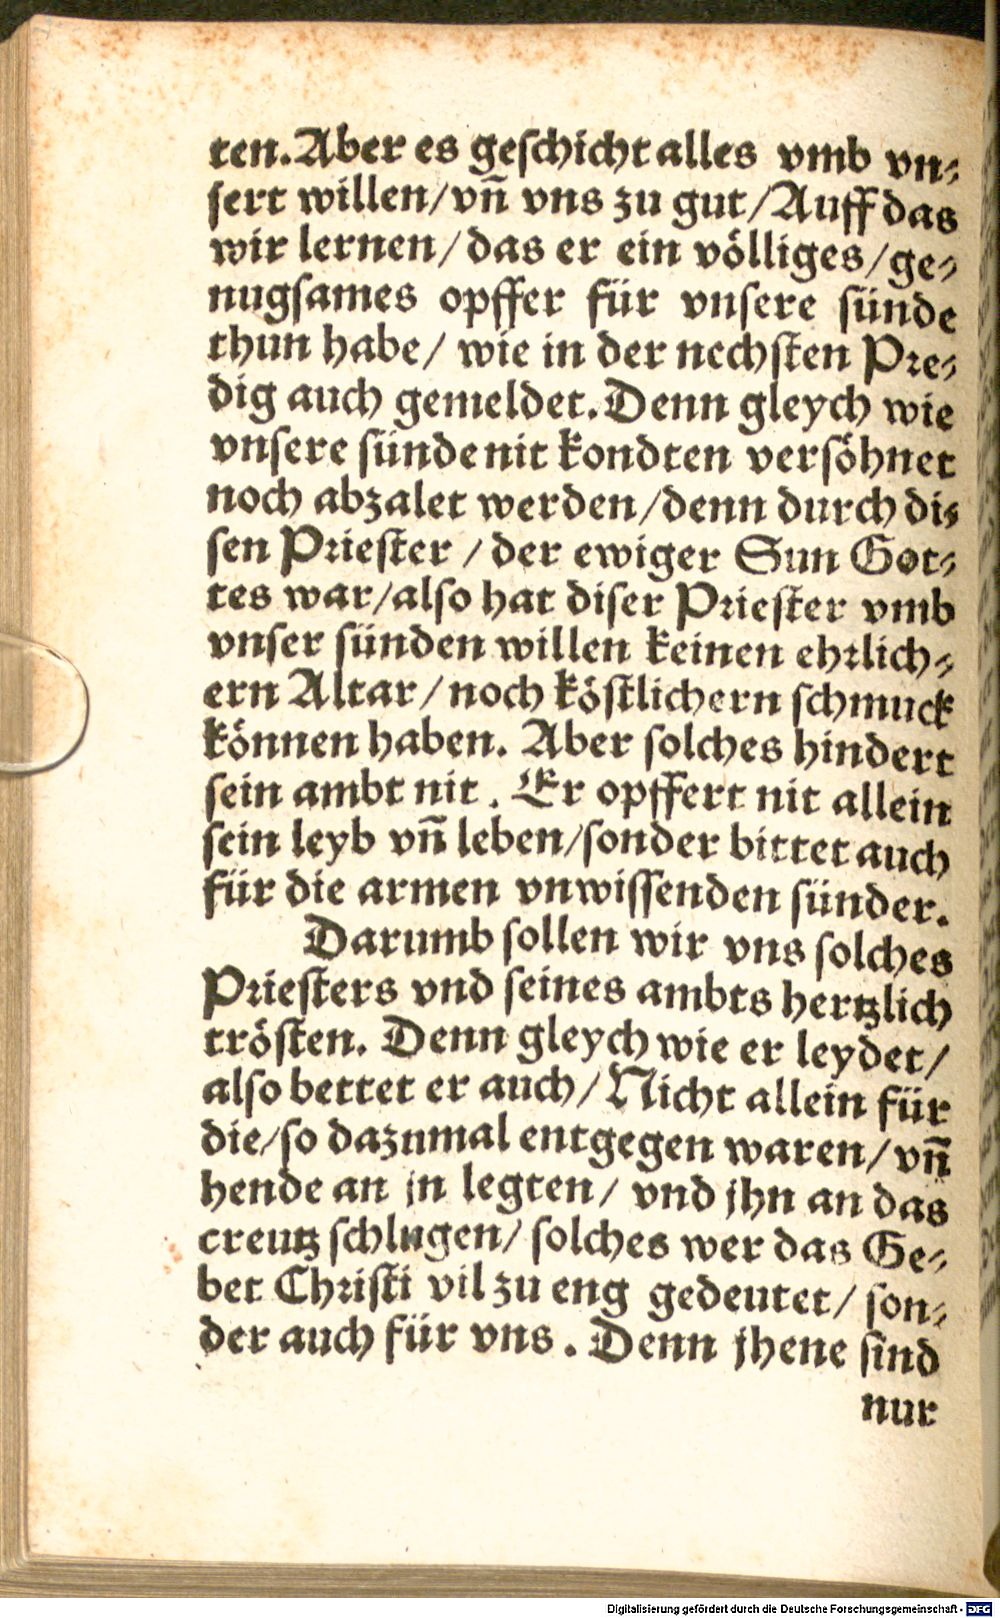 ten. Aber es geschicht alles vmb vn⸗
sert willen/vñ vns zu gut/Auff das
wir lernen/das er ein völliges/ge⸗
nugsames opffer für vnsere sünde
thun habe/ wie in der nechsten Pre⸗
dig auch gemeldet. Denn gleych wie
vnsere sünde nit kondten versöhnet
noch abzalet werden/denn durch dis
sen Priester / der ewiger Sun Got⸗
tes war/also hat diser Priester vmb
vnser sünden willen keinen ehrlich⸗
ern Altar/noch köstlichern schmuck
können haben. Aber solches hindert
sein ambt nit. Er opffert nit allein
sein leyb vñ leben/sonder bittet auch
für die armen vnwissenden sünder.
Darumb sollen wir vns solches
Priesters vnd seines ambts hertzlich
trösten. Denn gleych wie er leydet/
also bettet er auch/Nicht allein für
die/so dazumal entgegen waren/vñ
hende an jn legten/ vnd jhn an das
creutz schlugen/ solches wer das Ge⸗
bet Christi vil zu eng gedeutet/ son⸗
der auch für vns. Denn jhene sind
nur
Digitalisierung gefördert durch die Deutsche Forschungsgemeinschaft - DFG